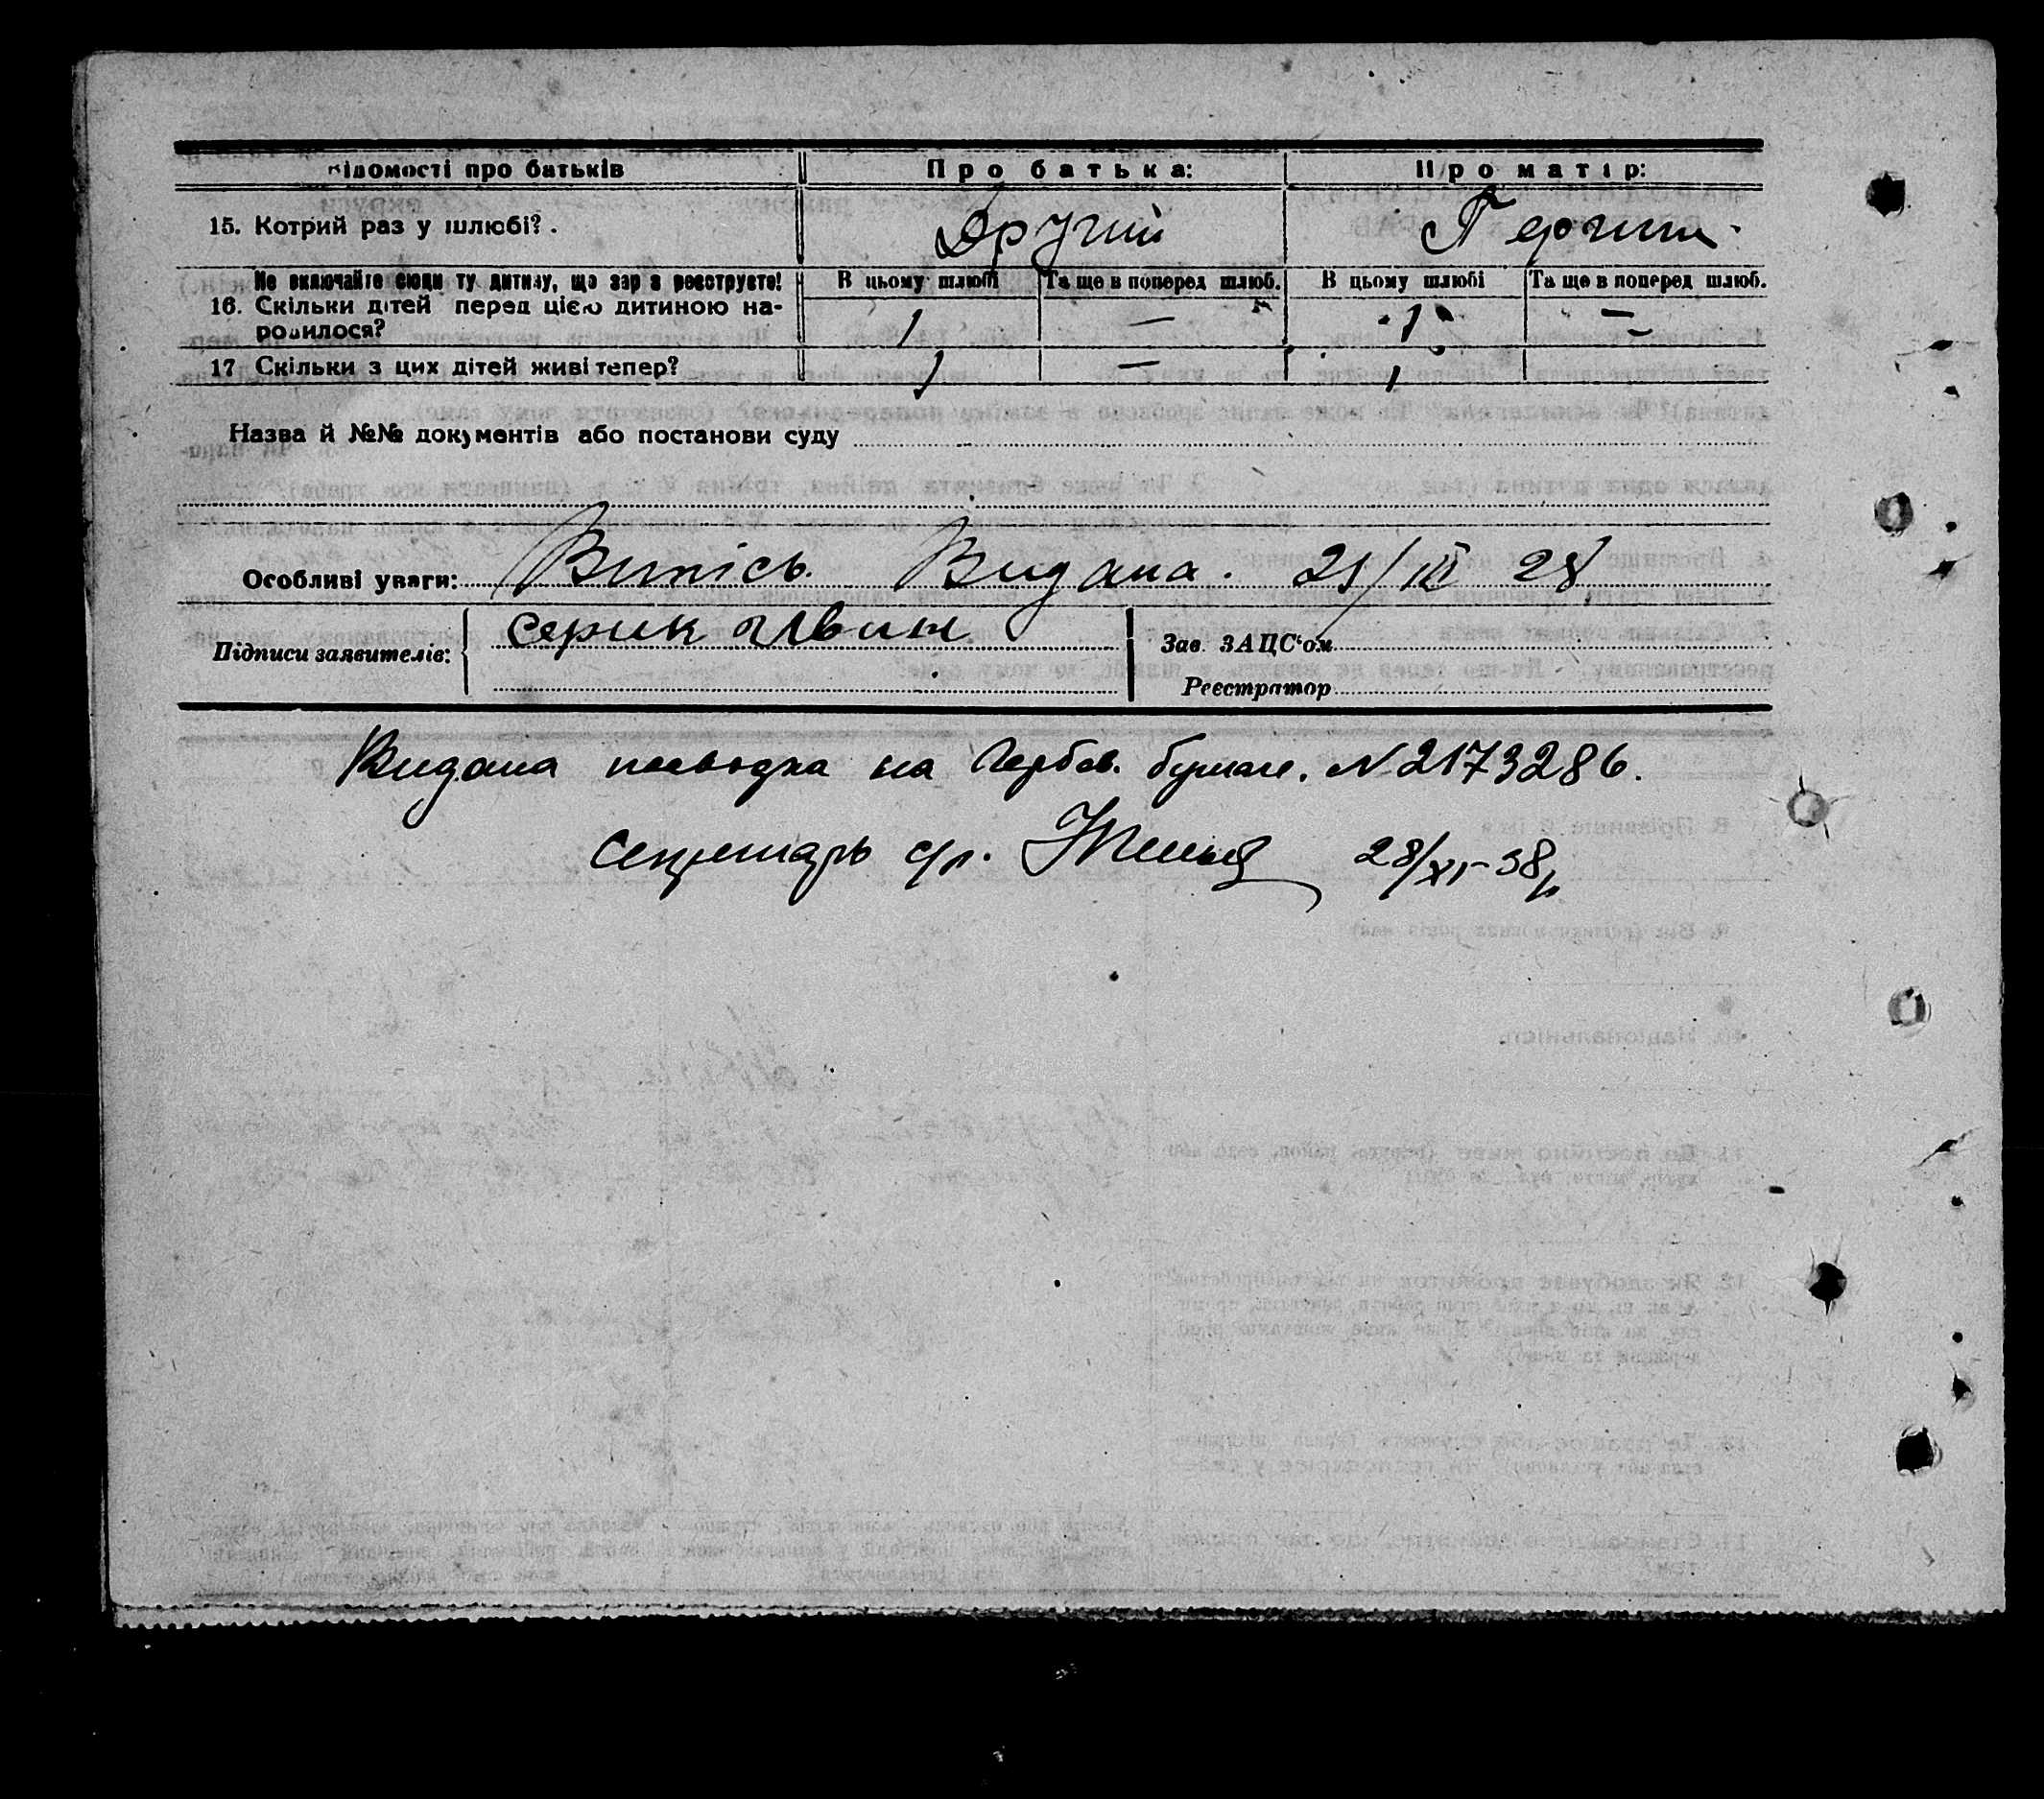 Відомості про батьків Про батька: Про матір:
15. Котрий раз у шлюбі? . Другий Перший
Не включайте сюди ту дитину, що зараз реєструєте! В цьому шлюбі Та ще в поперед шлюб. В цьому шлюбі Та ще в поперед шлюб.
16. Скільки дітей перед цією дитиною на-
родилося? 1 — 1 —
17 Скільки з цих дітей живі тепер? 1 — 1
Назва й №№ документів або постанови суду
Особливі уваги: Випісь Видана. 21/III 28
Підписи заявителів: Серик Иван Зав. ЗАЦС'ом
Реєстратор
Видана на Гербов. бумаге. N 2173286.
Секретарь с/р. 28/XI-38р